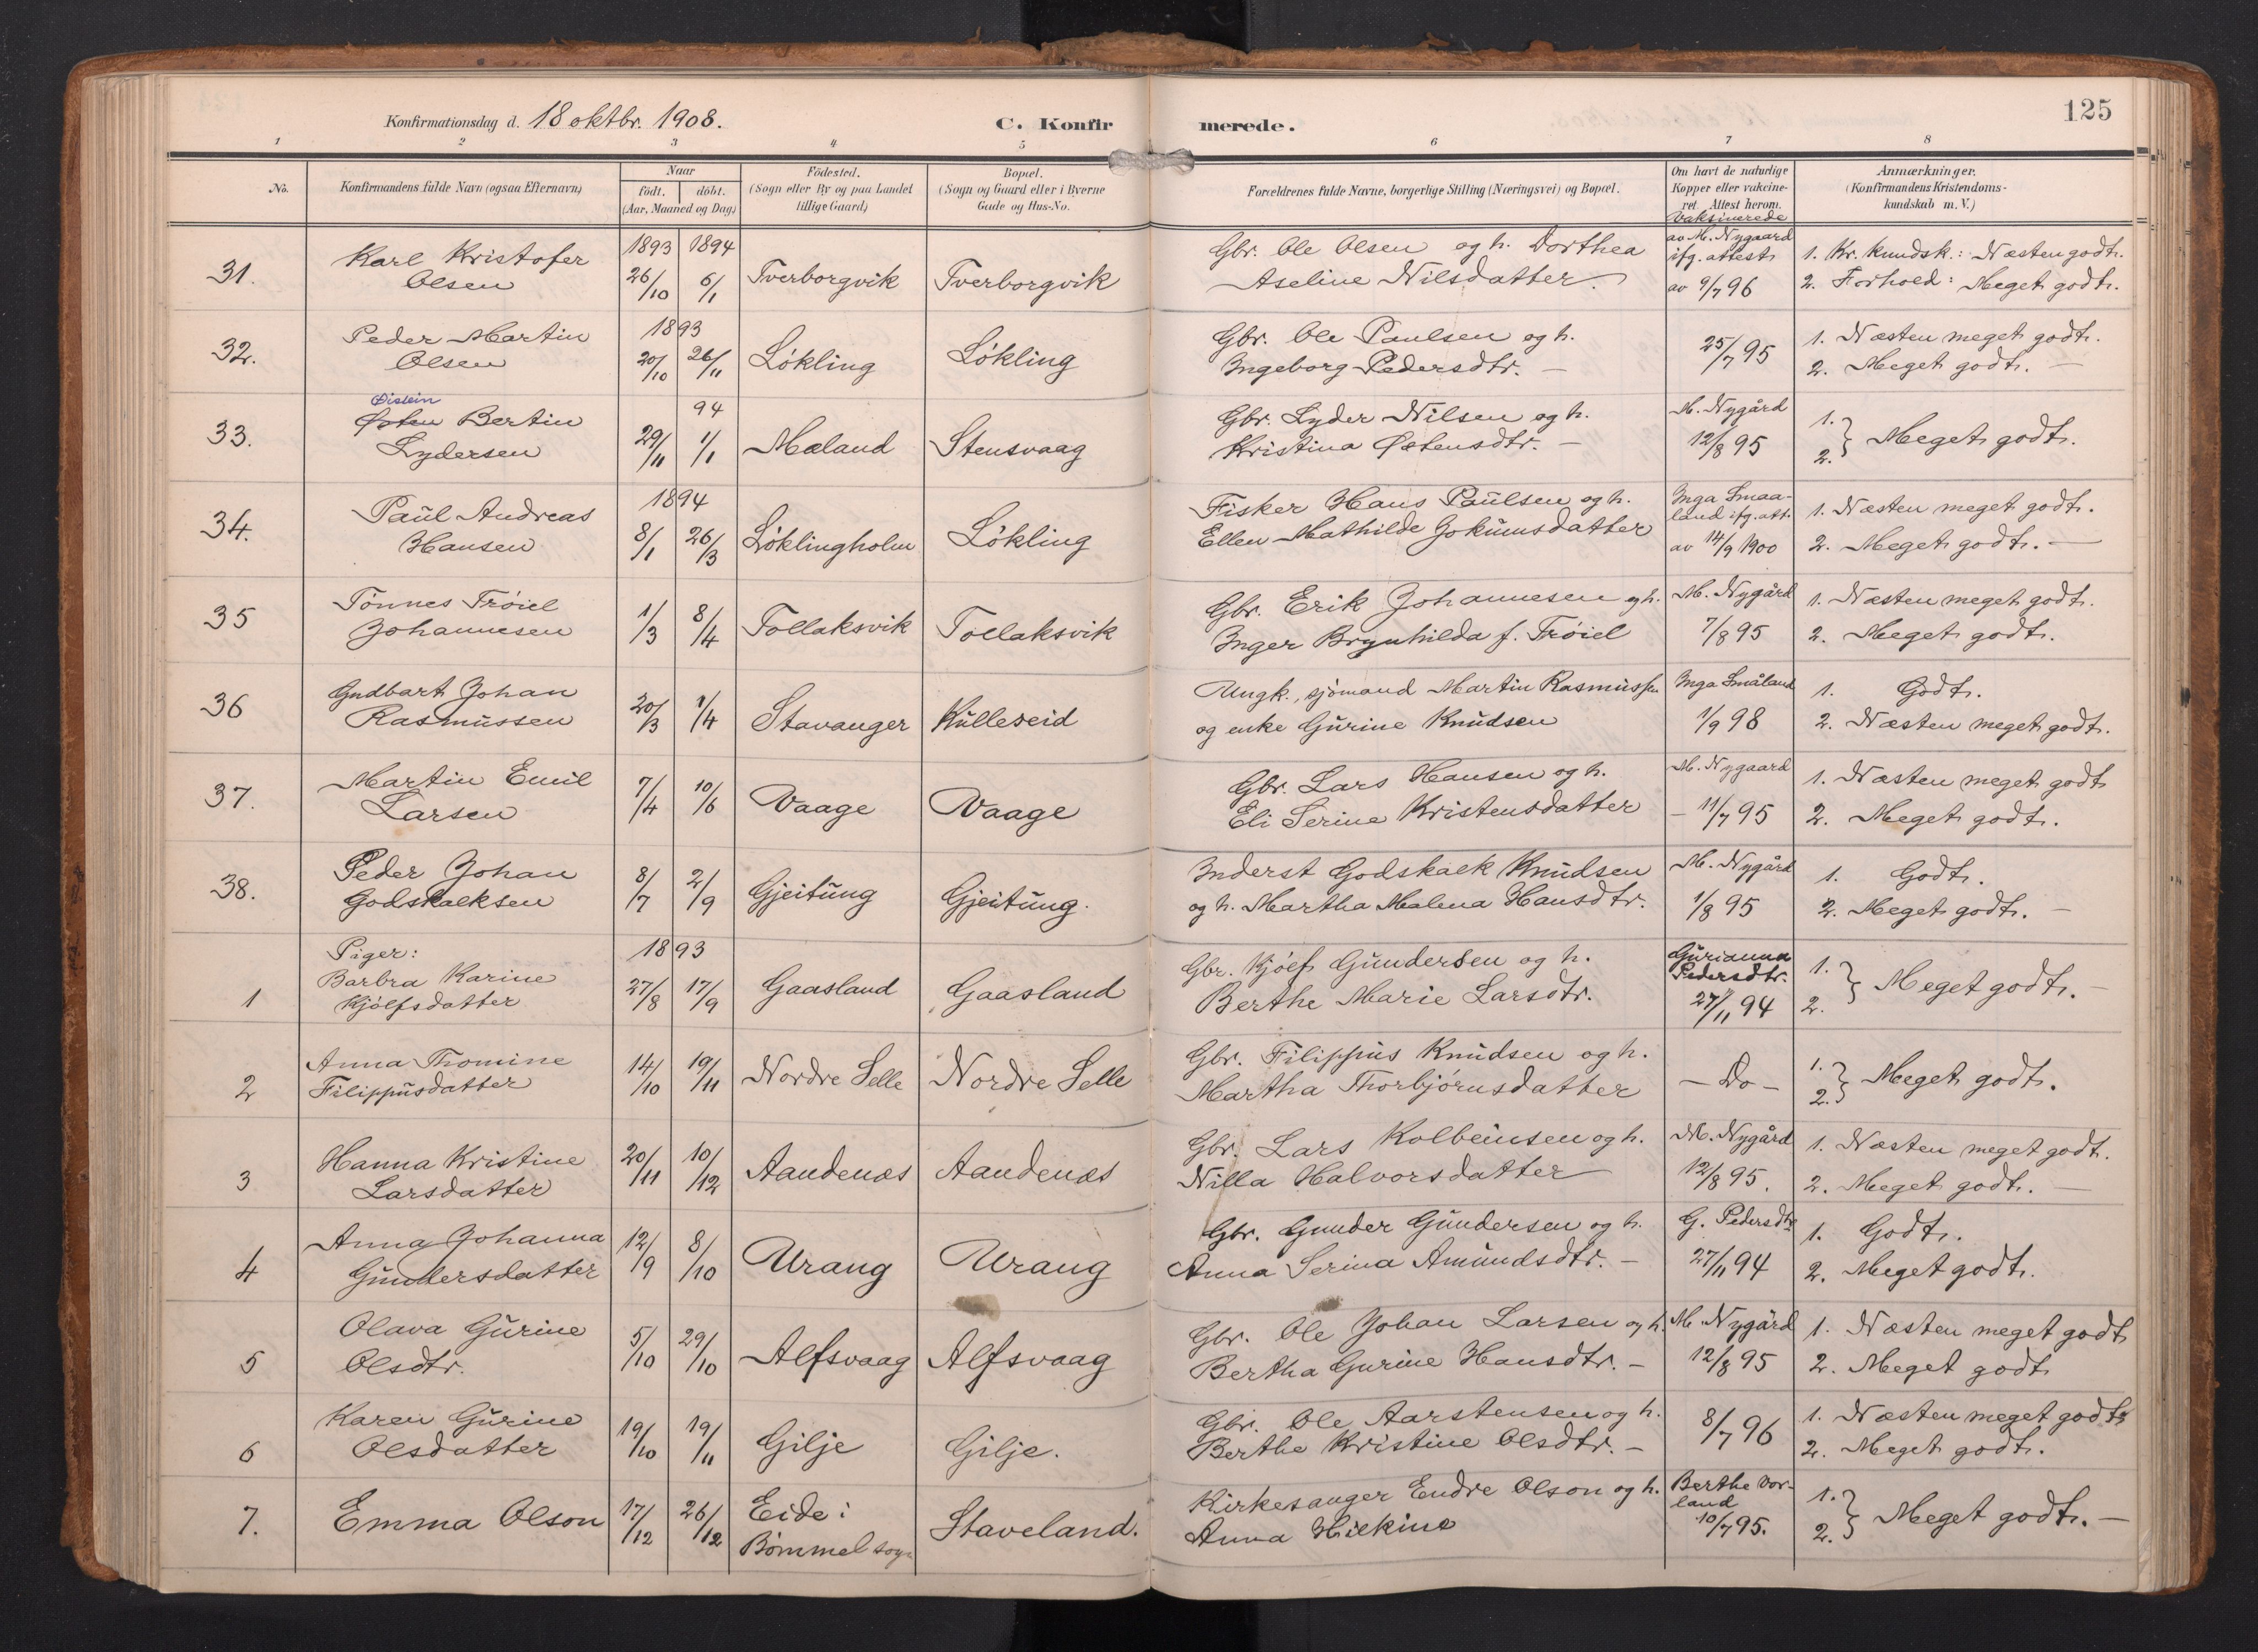 125
Konfirmationsdag d. 18 oktbr. 1908.
C. Konfirmerede.
1 2 3 4 5 6 7 8
No.
Konfirmandens fulde Navn (ogsaa Efternavn)
Naar
født. døbt.
(Aar, Maaned og Dag)
Fødested.
(Sogn eller By og paa Landet
tillige Gaard)
Bopæl.
(Sogn og Gaard eller i Byerne
Gade og Hus-No.
Forældrenes fulde Navne, borgerlige Stilling (Næringsvei) og Bopæl.
Om havt de naturlige
Kopper eller vakcine-
ret. Attest herom.
Anmærkninger.
(Konfirmandens Kristendoms-
kundskab m. V.)
Vaksinerede
1893 1894 Gbr. Ole Olsen og h. Dorthea av M. Nygaard
31. Karl Kristofer 26/10 6/1 Tverborgvik Tverborgvik Aseline Nilsdatter. ifg. attest 1. Kr. kundsk.: Næsten godt.
Olsen av 9/7 96 2. Forhold: Meget godt.
1893
32. Peder Martin 20/10 26/11 Løkling Løkling Gbr. Ole Paulsen og h. 25/7 95 1. Næsten meget godt.
Olsen Ingeborg Pedersdtr. – 2. Meget godt. –
Øistein 94
33. Østen Bertin 29/11 1/1 Mæland Stensvaag Gbr. Lyder Nilsen og h. M. Nygård 1. } Meget godt.
Lydersen Kristina Østensdtr. – 12/8 95 2.
1894
34. Paul Andreas 8/1 26/3 Løklingholm Løkling Fisker Hans Paulsen og h. Inga Smaa- 1. Næsten meget godt.
Hansen Ellen Mathilde Jokumsdatter land ifg. att. 2. Meget godt. –
av 14/9 1900
35 Tønnes Trøiel 1/3 8/4 Tollaksvik Tollaksvik Gbr. Erik Johannesen og h. M. Nygård 1. Næsten meget godt.
Johannesen Inger Brynhilda f. Trøiel 7/8 95 2. Meget godt.
36 Gudbart Johan 20/3 1/4 Stavanger Kulleseid Ungk., sjømand Martin Rasmussen Inga Småland 1. Godt.
Rasmussen og enke Gurine Knudsen 1/9 98 2. Næsten meget godt.
37. Martin Emil 7/4 10/6 Vaage Vaage Gbr. Lars Hansen og h. M. Nygaard 1. Næsten meget godt
Larsen Eli Serine Kristensdatter – 11/7 95 2. Meget godt.
38. Peder Johan 8/7 2/9 Gjeitung Gjeitung. Inderst Godskalk Knudsen M. Nygård 1. Godt.
Godskalksen og h. Martha Malena Hansdtr. 1/8 95 2. Meget godt. –
Piger: 1893
1 Barbra Karine 27/8 17/9 Gaasland Gaasland Gbr. Kjølf Gundersen og h. Gurianna 1. } Meget godt. –
Kjølfsdatter Berthe Marie Larsdtr. Pedersdtr. 2.
27/11 94
2 Anna Thomine 14/10 19/11 Nordre Selle Nordre Selle Gbr. Filippus Knudsen og h. – Do – 1. } Meget godt.
Filippusdatter Martha Thorbjørnsdatter 2.
3 Hanna Kristine 20/11 10/12 Aandenæs Aandenæs Gbr. Lars Kolbeinsen og h. M. Nygård 1. Næsten meget godt.
Larsdatter Nilla Halvorsdatter 12/8 95. 2. Meget godt. –
4 Anna Johanna 12/9 8/10 Urang Urang Gbr. Gunder Gundersen og h. G. Pedersdtr 1. Godt.
Gundersdatter Anna Serina Amundsdtr. – 27/11 94 2. Meget godt.
5 Olava Gurine 5/10 29/10 Alfsvaag Alfsvaag Gbr. Ole Johan Larsen og h. M. Nygård 1. Næsten meget godt
Olsdtr. Bertha Gurine Hansdtr. – 12/8 95 2. Meget godt
6 Karen Gurine 19/10 19/11 Gilje Gilje. Gbr. Ole Aarstensen og h. 8/7 96 1. Næsten meget godt
Olsdatter Berthe Kristine Olsdtr. – 2. Meget godt.
7. Emma Olson 17/12 26/12 Eide i Staveland. Kirkesanger Endre Olson og h. Berthe Vor- 1. } Meget godt. –
Bømmel sogn Anna Hilkine land 2.
10/7 95.